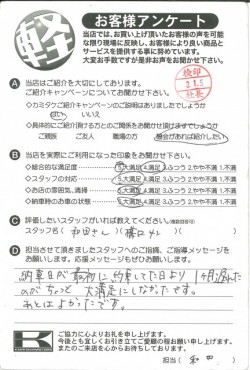 軽
お客様アンケート
当店では、お買い上げ頂いたお客様の声を可能
な限り現場に反映し、お客様により良い商品と
サービスを提供する事に努めています。
大変お手数ですが是非お声をお聞かせ下さい。
検印
2.1.5
A 当店はご紹介を大切にしております。
ご紹介キャンペーンについてお聞かせ下さい。
◇カミタケご紹介キャンペーンのご説明はありましたでしょうか
はい いいえ
◇具体的にご紹介頂ける方とのご関係をお聞かせ頂けますでしょうか
ご親族 ご友人 職場の方 機会があれば紹介したい
B 当店を実際にご利用になった印象をお聞かせ下さい。
◇総合的な満足度 5.大満足 4.満足 3.ふつう 2.やや不満 1.不満
◇スタッフの対応 5.大満足 4.満足 3.ふつう 2.やや不満 1.不満
◇お店の雰囲気、清掃 5.大満足 4.満足 3.ふつう 2.やや不満 1.不満
◇納車時のお車の状態 5.大満足 4.満足 3.ふつう 2.やや不満 1.不満
C 評価したいスタッフがいれば教えてください。(複数回答可)
スタッフ名( 和田さん )( 樋口さん )
D 担当させて頂きましたスタッフへのご指摘、ご指導メッセージを
お願いします。応援メッセージもぜひお願いします。
納車日が最初に約束してた日より1ヶ月遅れた
のがちょっと大満足にしなかったです。
あとはよかったです。
K
ご協力に心よりお礼を申し上げます。
今後とも宜しくお引き立てご愛顧の程お願い申し上げます。
またのご来店を心からお待ちしております。
担当( 和田 )